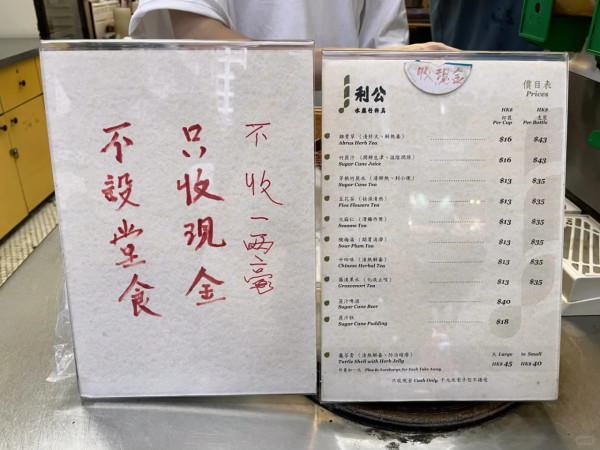 不收一兩毫
只收現金
不設堂食
收現金
公利
價目表
Prices
HK$
Per Cup
HK$
Per Bottle
雞骨草
Abrus Herb Tea
$16
$43
竹蔗汁
Sugar Cane Juice
$16
$43
茅根竹蔗水
Sugar Cane Tea
$13
$35
五花茶
Five Flowers Tea
$13
$35
火麻仁
Sesame Tea
$13
$35
酸梅湯
Sour Plum Tea
$13
$35
廿四味
Chinese Herbal Tea
$13
$35
羅漢果水
Grosvenori Tea
$13
$35
蔗汁啤酒
Sugar Cane Beer
$40
蔗汁糕
Sugar Cane Pudding
$18
龜苓膏
Turtle Shell with Herb Jelly
大 Large
HK$ 45
細 Small
HK$ 40
Plus $1 Surcharge for Each Take Away.
只收現金 Cash Only.